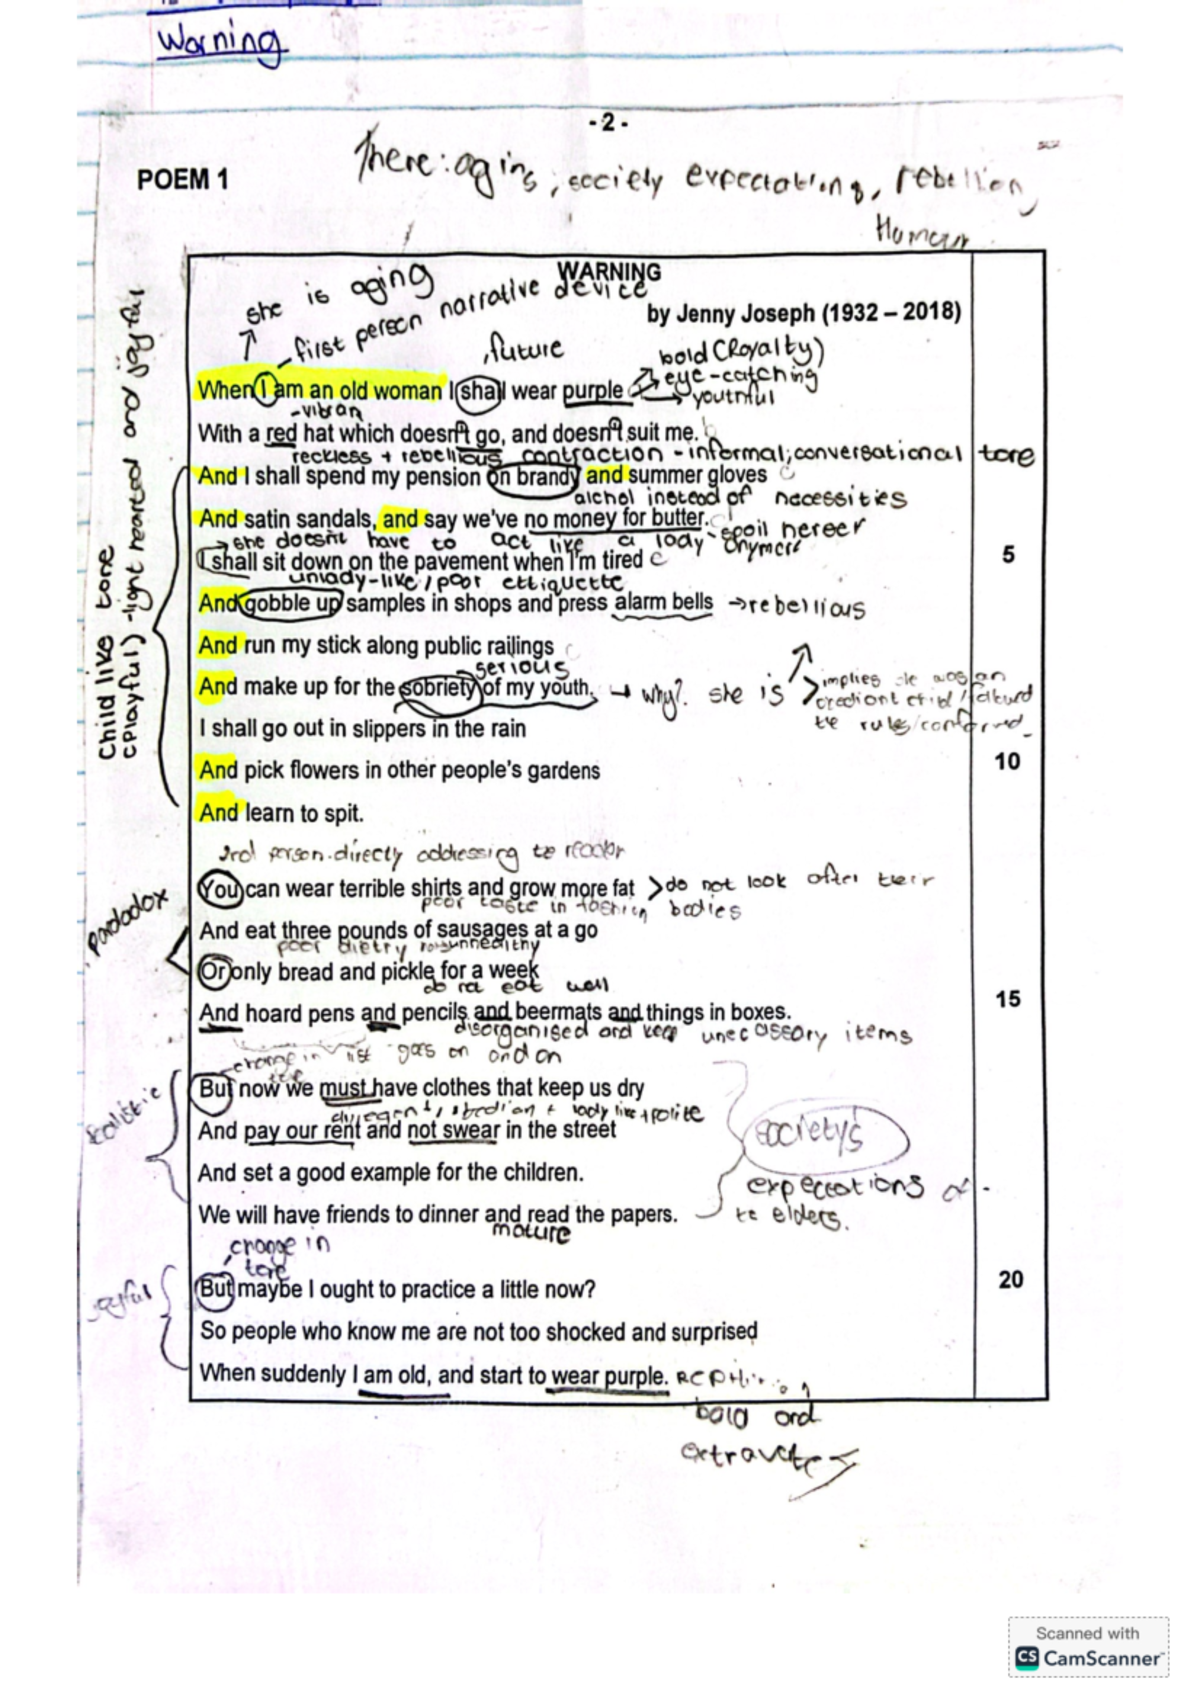 Warning
- 2 -
There: aging, society expectations, rebellion,
Humour
POEM 1
WARNING
by Jenny Joseph (1932 – 2018)
she is aging
first person narrative device
, future
bold (Royalty)
eye-catching
youthful
When I am an old woman I shall wear purple
- vibran
With a red hat which doesn't go, and doesn't suit me.
reckless + rebellious contraction - informal, conversational tore
And I shall spend my pension on brandy and summer gloves
alchol instead of necessities
And satin sandals, and say we've no money for butter.
she doesn't have to act like a lady
I shall sit down on the pavement when I'm tired
5
unlady-like / poor ettiquette
And gobble up samples in shops and press alarm bells
→ rebellious
And run my stick along public railings
serious
And make up for the sobriety of my youth.
→ why? she is
implies
I shall go out in slippers in the rain
And pick flowers in other people's gardens
10
And learn to spit.
Child like tone
(Playful) - light hearted and joyful
person. directly addressing to reader
You can wear terrible shirts and grow more fat
> do not look after their
bodies
poor taste in fashion
And eat three pounds of sausages at a go
poor dietry unhealthy
Or only bread and pickle for a week
do not eat well
Paradox
And hoard pens and pencils and beermats and things in boxes.
15
disorganised and keep unecessary items
list goes on and on
change in
But now we must have clothes that keep us dry
lady like + polite
And pay our rent and not swear in the street
And set a good example for the children.
We will have friends to dinner and read the papers.
mature
society's
expectations of
te elders.
change in
tore
But maybe I ought to practice a little now?
20
So people who know me are not too shocked and surprised
When suddenly I am old, and start to wear purple.
joyful
bold and
Scanned with
CS CamScanner